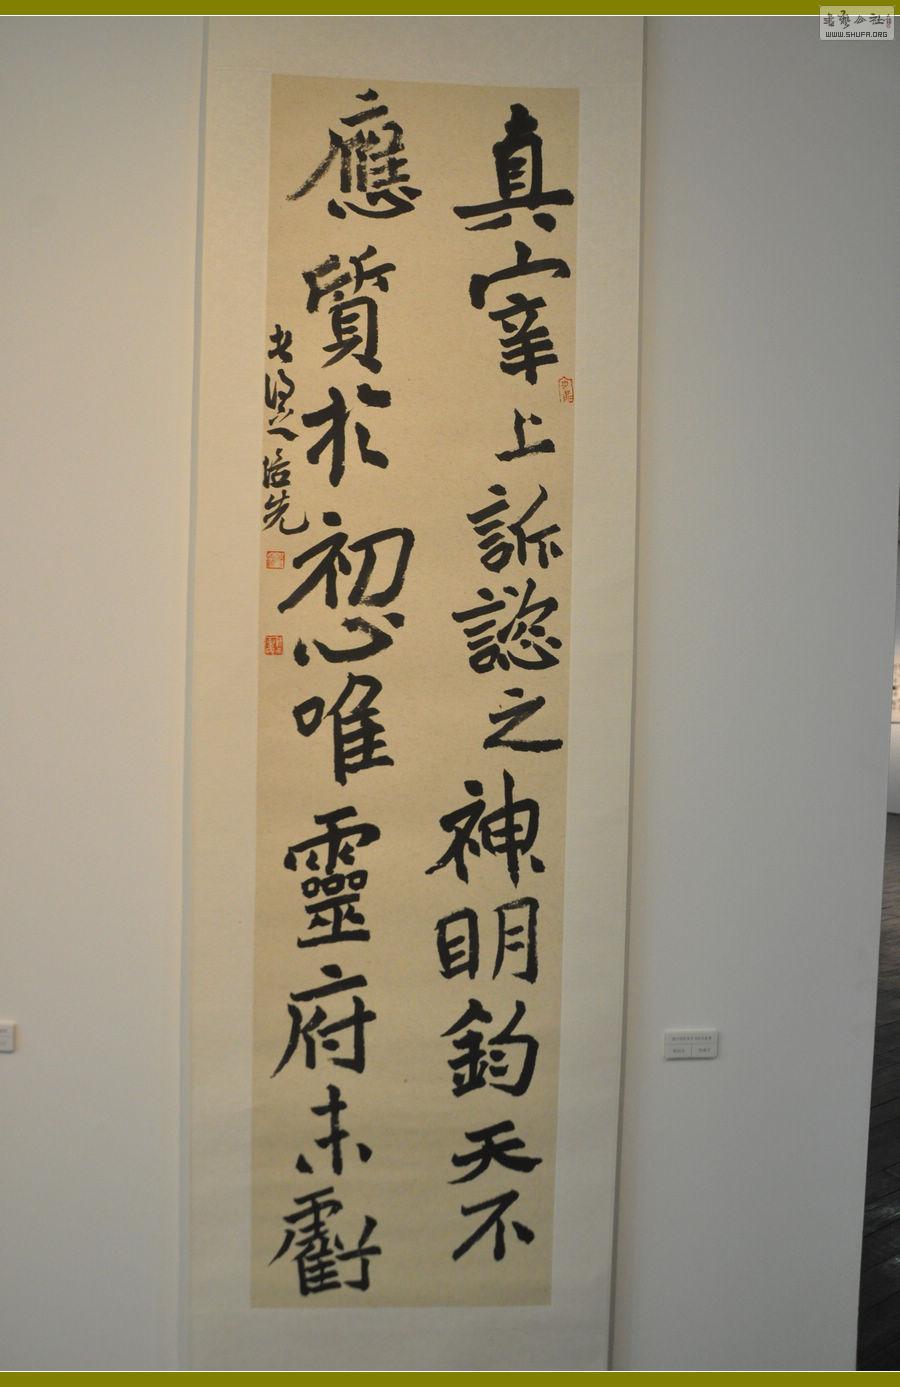 真宰上訴諮之神明鈞天不
應質於初心唯靈府未虧
先
書藝公社
WWW.SHUFA.ORG